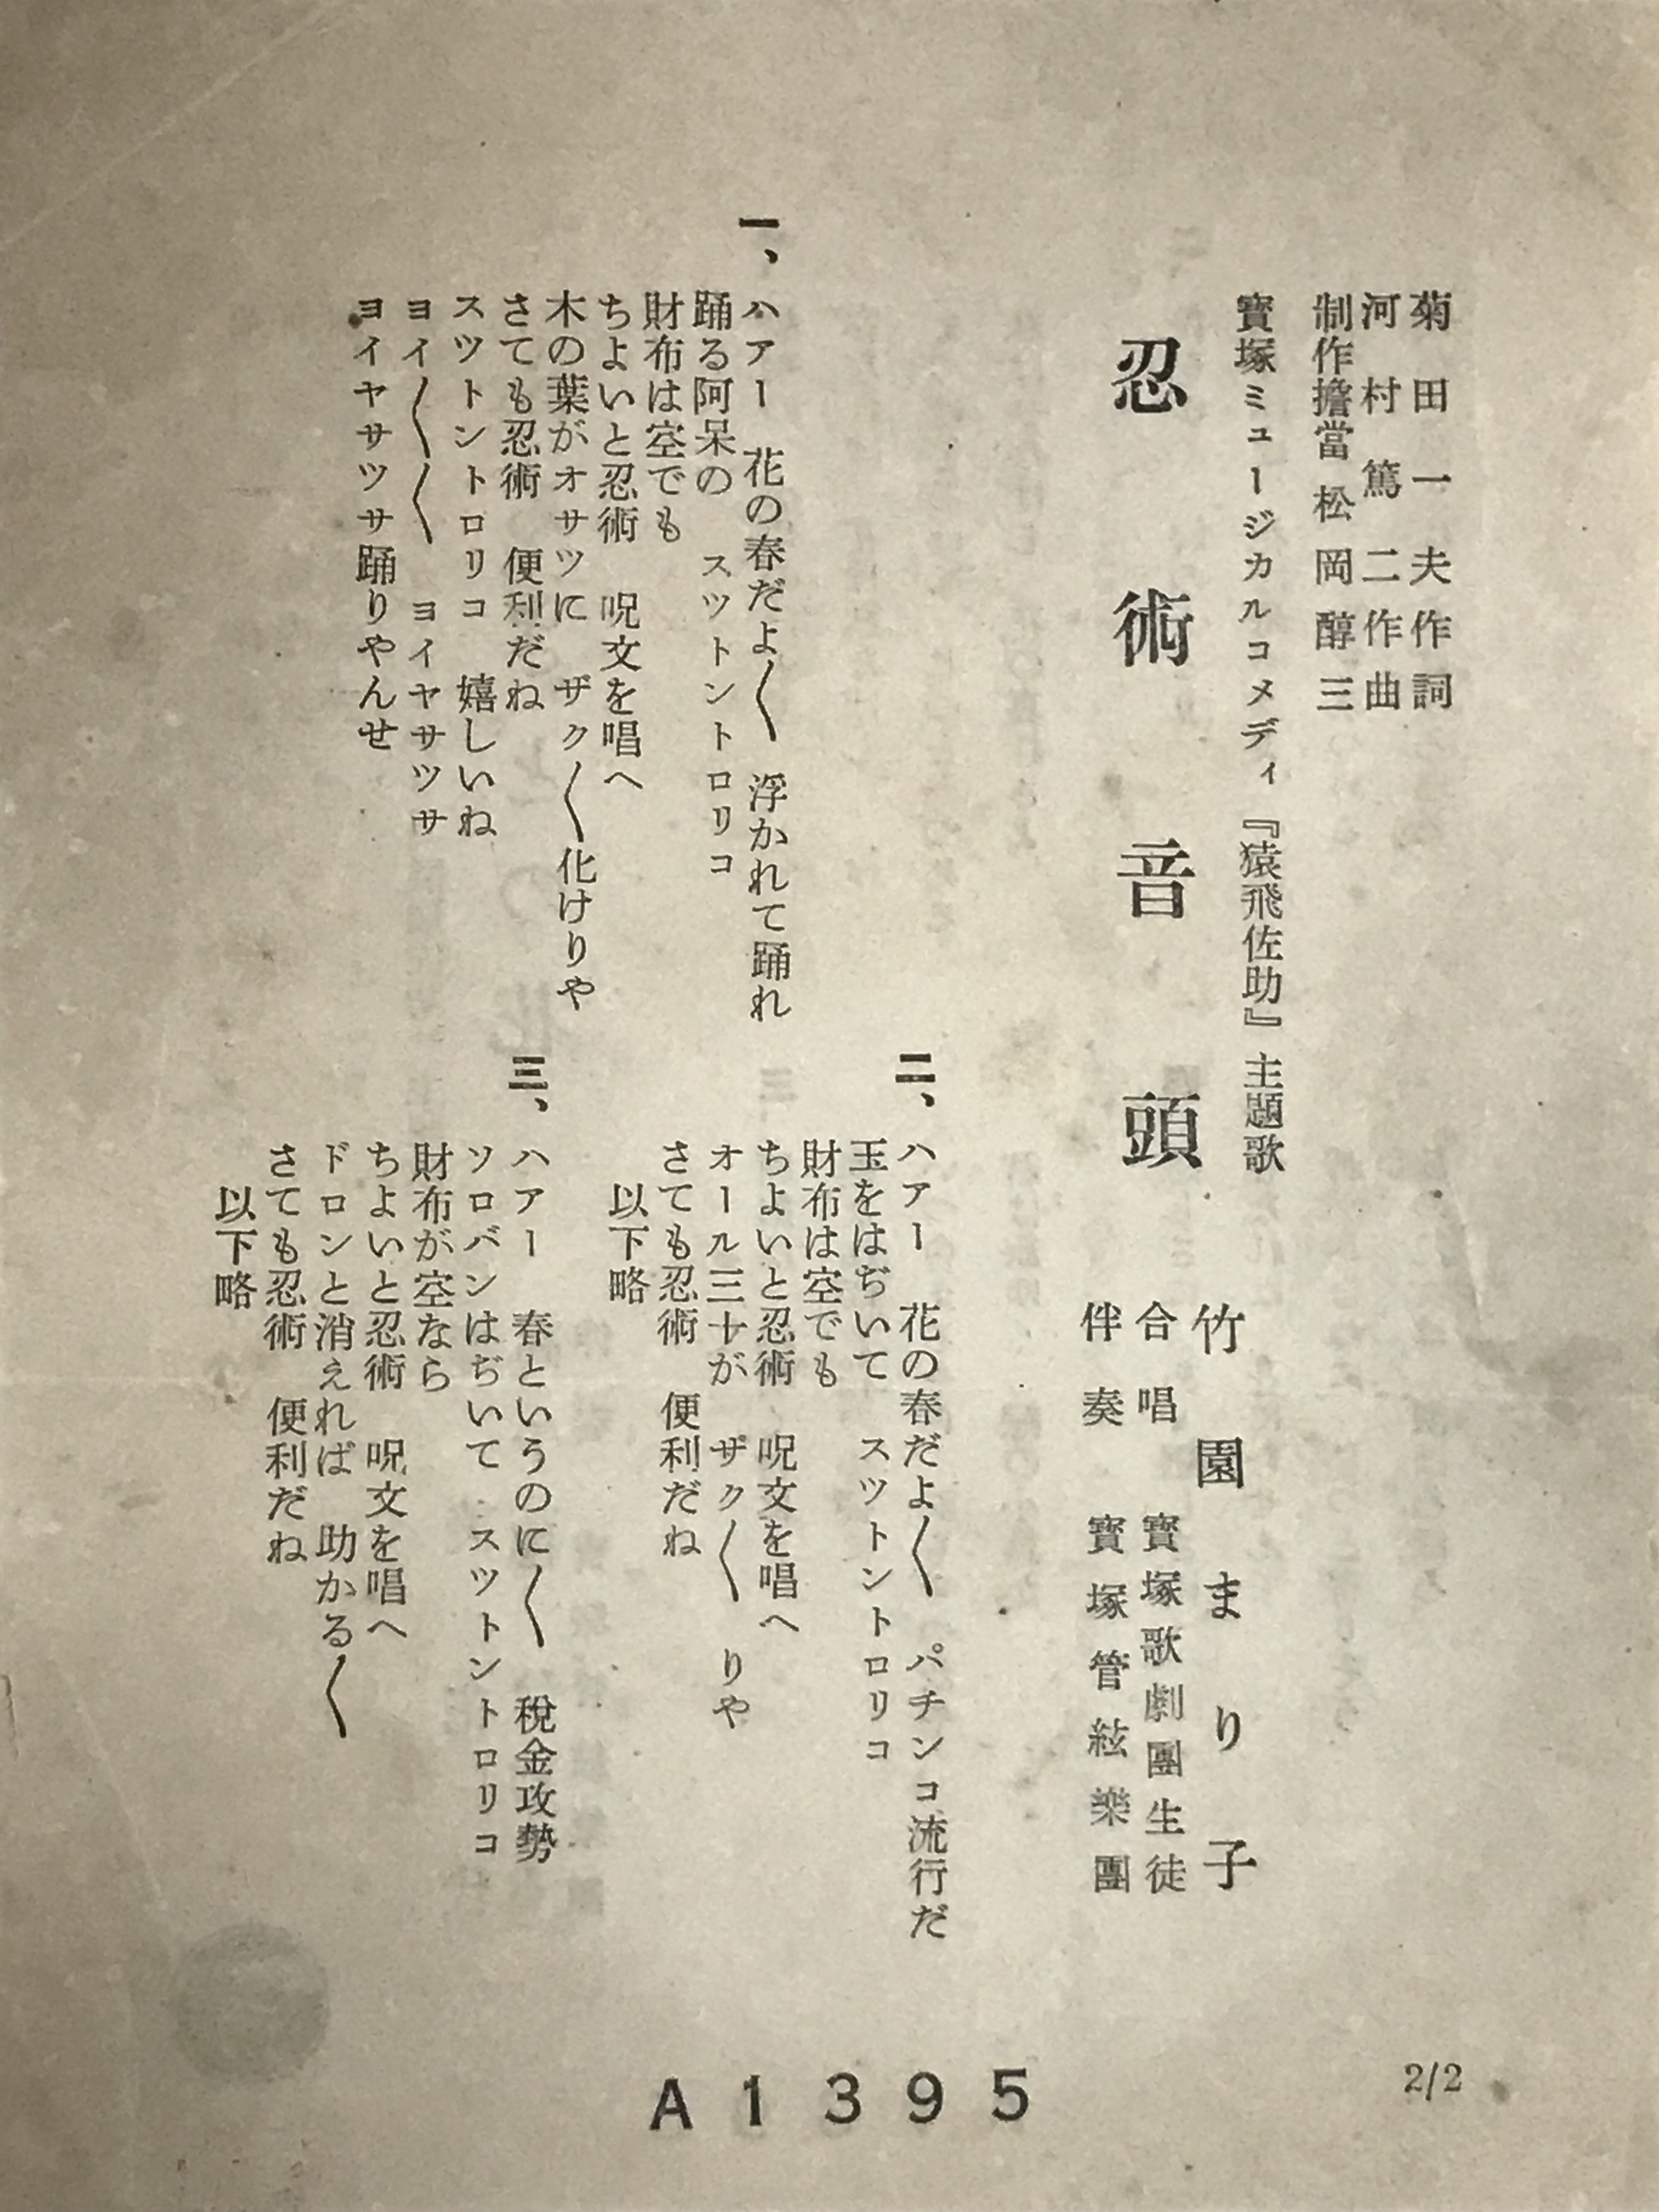 菊田一夫作詞
河村篤二作曲
制作擔當 松岡醇三
寶塚ミュージカルコメディ『猿飛佐助』主題歌
忍術音頭
竹園まり子
合唱 寶塚歌劇團生徒
伴奏 寶塚管絃樂團
一、ハアー 花の春だよ〱 浮かれて踊れ
踊る阿呆の スツトントロリコ
財布は空でも
ちよいと忍術 呪文を唱へ
木の葉がオサツに ザク〱化けりや
さても忍術 便利だね
スツトントロリコ 嬉しいね
ヨイ〱〱 ヨイヤサツサ
ヨイヤサツサ踊りやんせ
二、ハアー 花の春だよ〱 パチンコ流行だ
玉をはぢいて スツトントロリコ
財布は空でも
ちよいと忍術 呪文を唱へ
オール三十が ザク〱 りや
さても忍術 便利だね
以下略
三、ハアー 春というのに〱 税金攻勢
ソロバンはぢいて スツトントロリコ
財布が空なら
ちよいと忍術 呪文を唱へ
ドロンと消ぇれば 助かる〱
さても忍術 便利だね
以下略
A1395
2/2